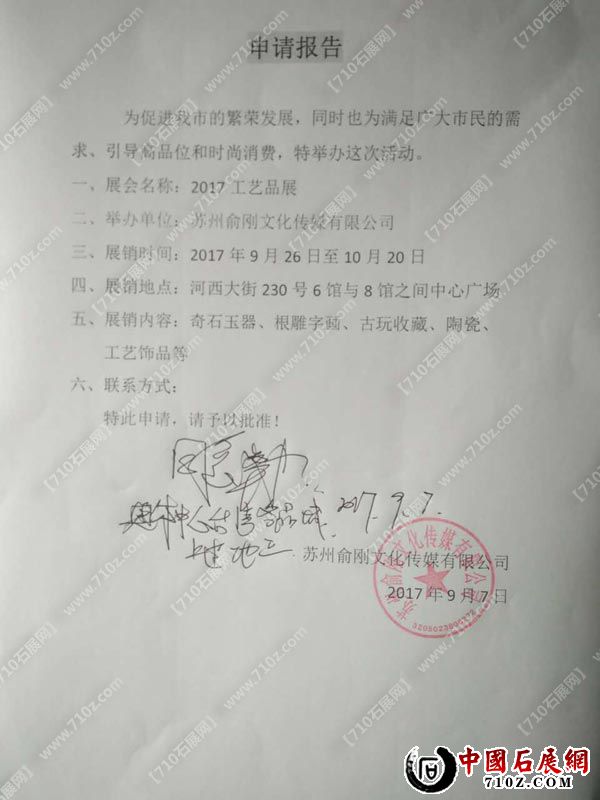 申请报告
为促进我市的繁荣发展，同时也为满足广大市民的需
求、引导高品位和时尚消费，特举办这次活动。
一、展会名称：2017 工艺品展
二、举办单位：苏州俞刚文化传媒有限公司
三、展销时间：2017 年 9 月 26 日至 10 月 20 日
四、展销地点：河西大街 230 号 6 馆与 8 馆之间中心广场
五、展销内容：奇石玉器、根雕字画、古玩收藏、陶瓷、
工艺饰品等
六、联系方式：
特此申请，请予以批准！
同意举办
2017. 9. 7.
苏州俞刚文化传媒有限公司
2017 年 9 月 7 日
苏州俞刚文化传媒有限公司
中國石展網
710Z.COM
【710石展网】
www.710z.com